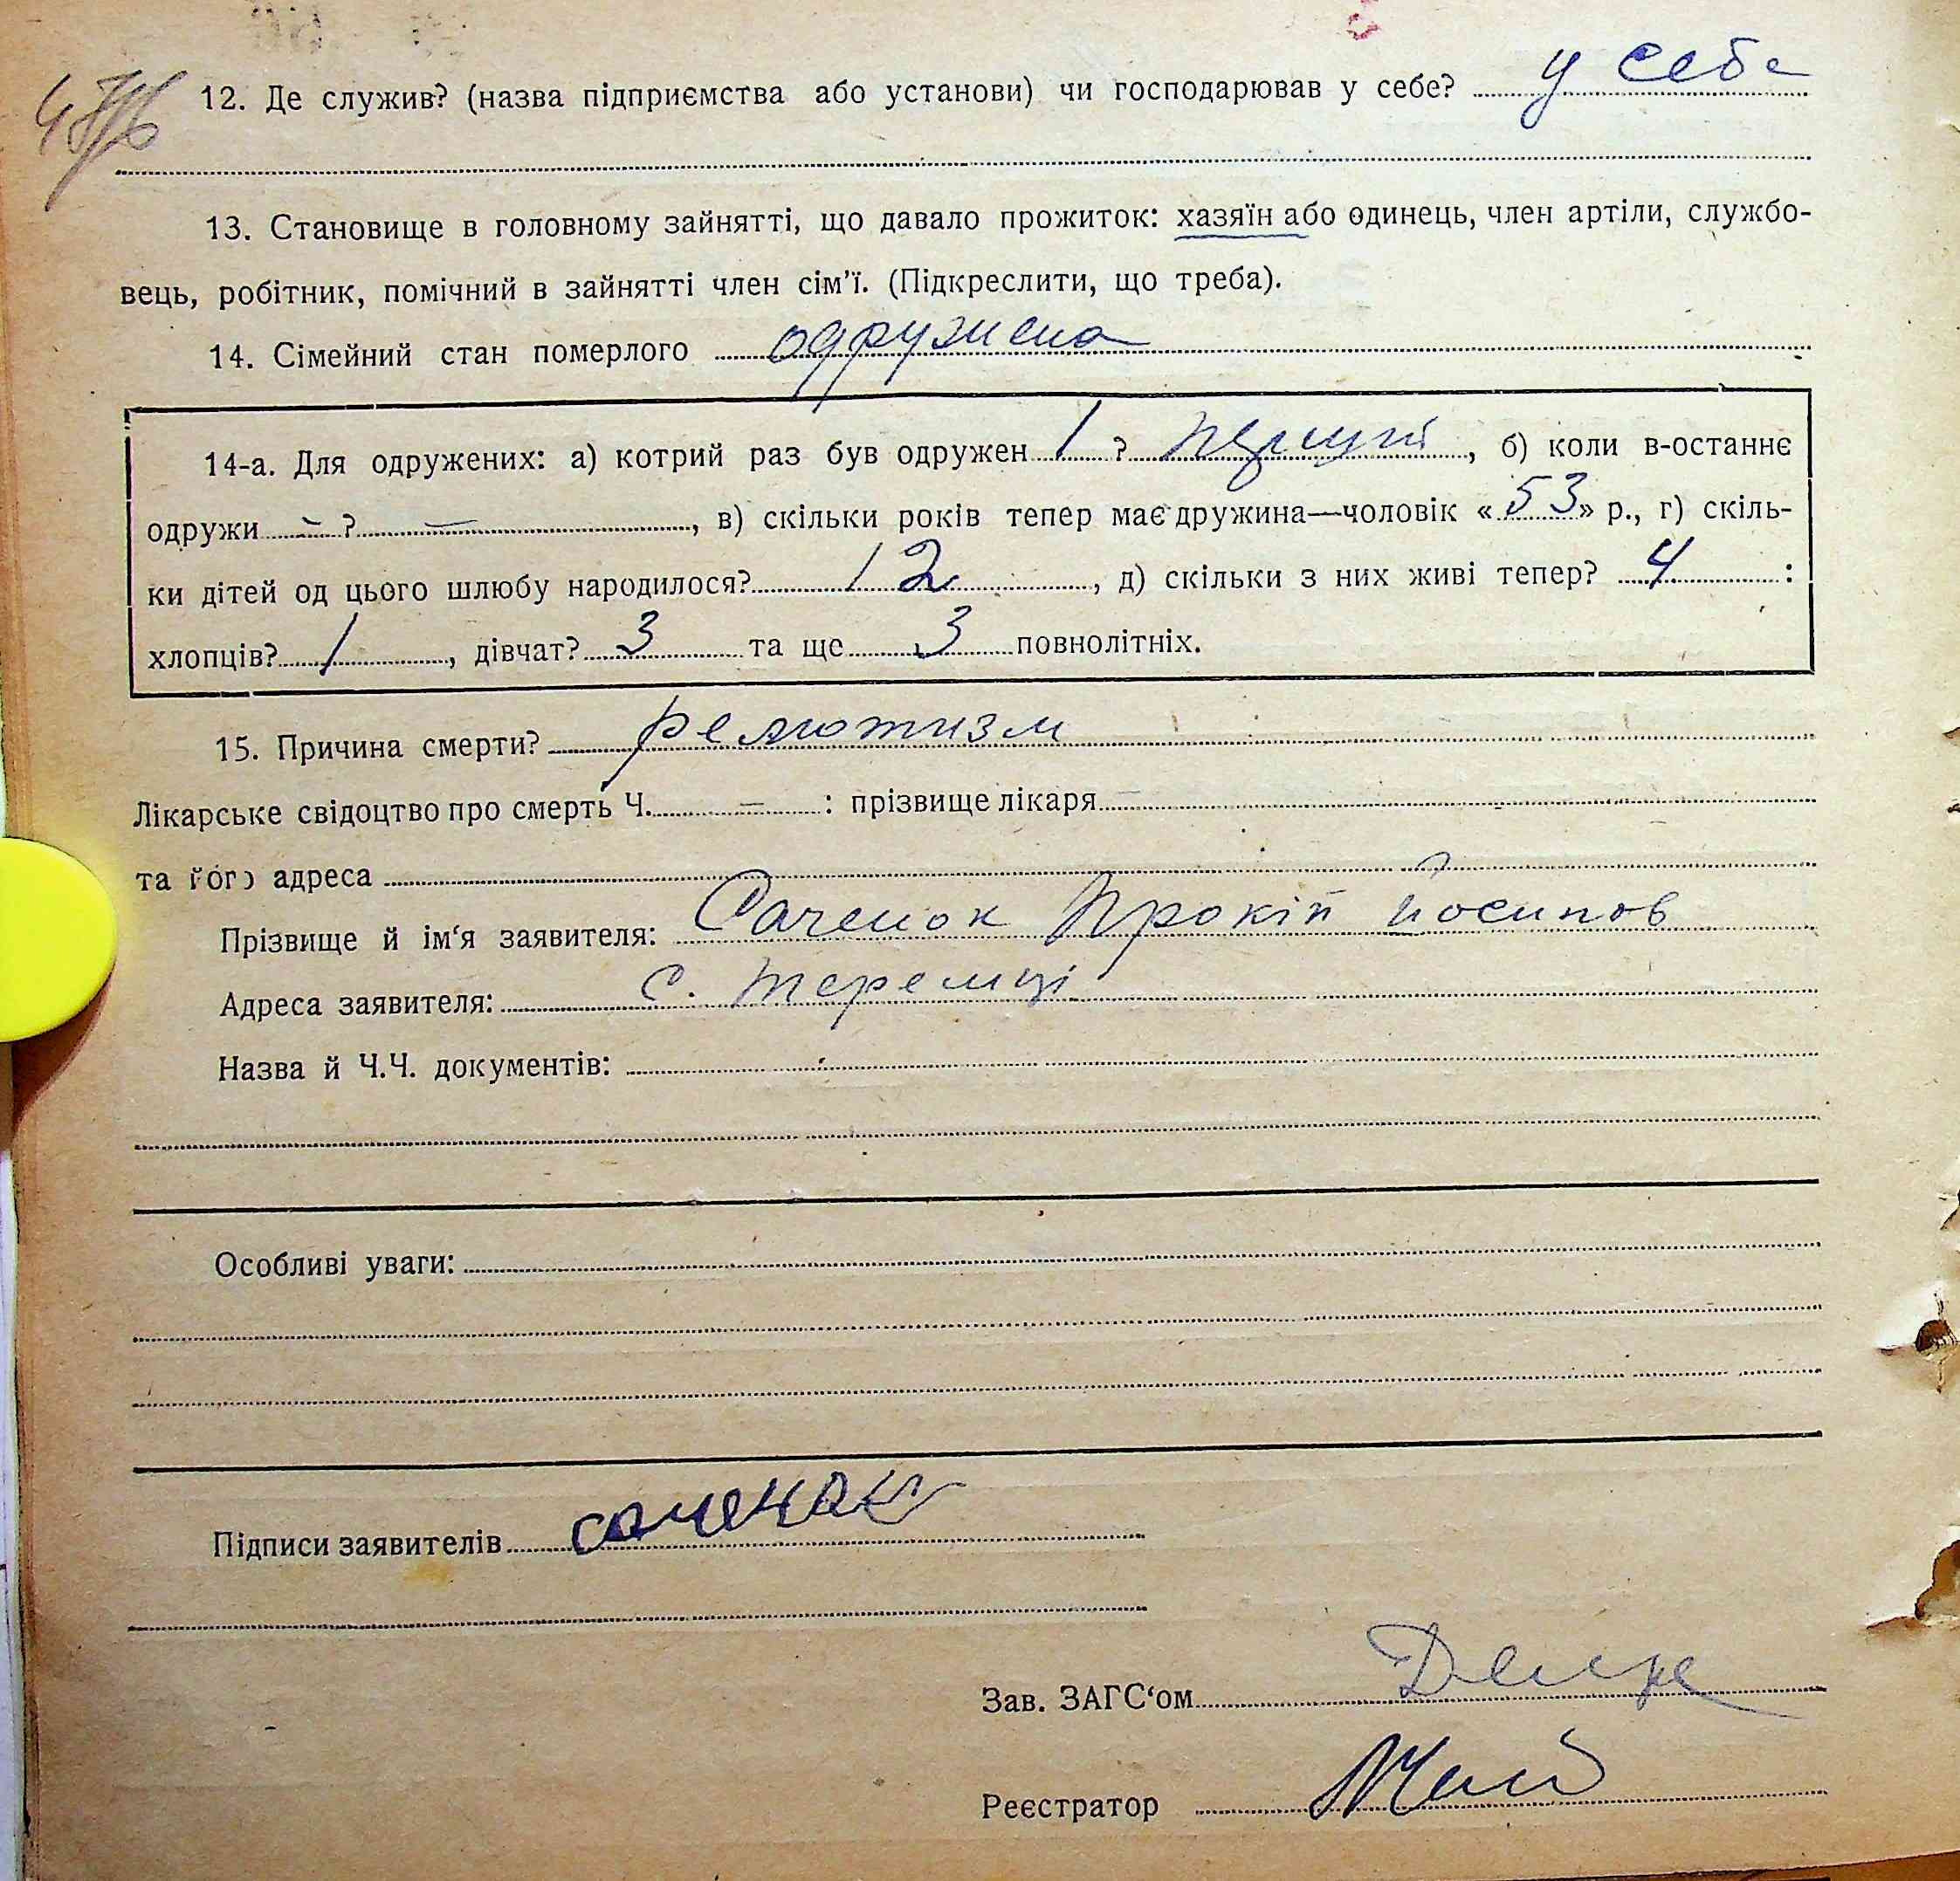 12. Де служив? (назва підприємства або установи) чи господарював у себе? у себе
13. Становище в головному зайнятті, що давало прожиток: хазяїн або одинець, член артіли, службо-
вець, робітник, помічний в зайнятті член сім'ї. (Підкреслити, що треба).
14. Сімейний стан померлого одружена
14-а. Для одружених: а) котрий раз був одружен 1 ? перший, б) коли в-останнє
одружи – ? –, в) скільки років тепер має дружина—чоловік «53» р., г) скіль-
ки дітей од цього шлюбу народилося? 12, д) скільки з них живі тепер? 4 :
хлопців? 1, дівчат? 3 та ще 3 повнолітніх.
15. Причина смерти? ревмотизм
Лікарське свідоцтво про смерть Ч. – : прізвище лікаря –
та його адреса
Прізвище й ім'я заявителя: Саченок Прокіп Йосипов
Адреса заявителя: с. Теремці
Назва й Ч.Ч. документів:
Особливі уваги:
Підписи заявителів саченок
Зав. ЗАГС'ом
Реєстратор